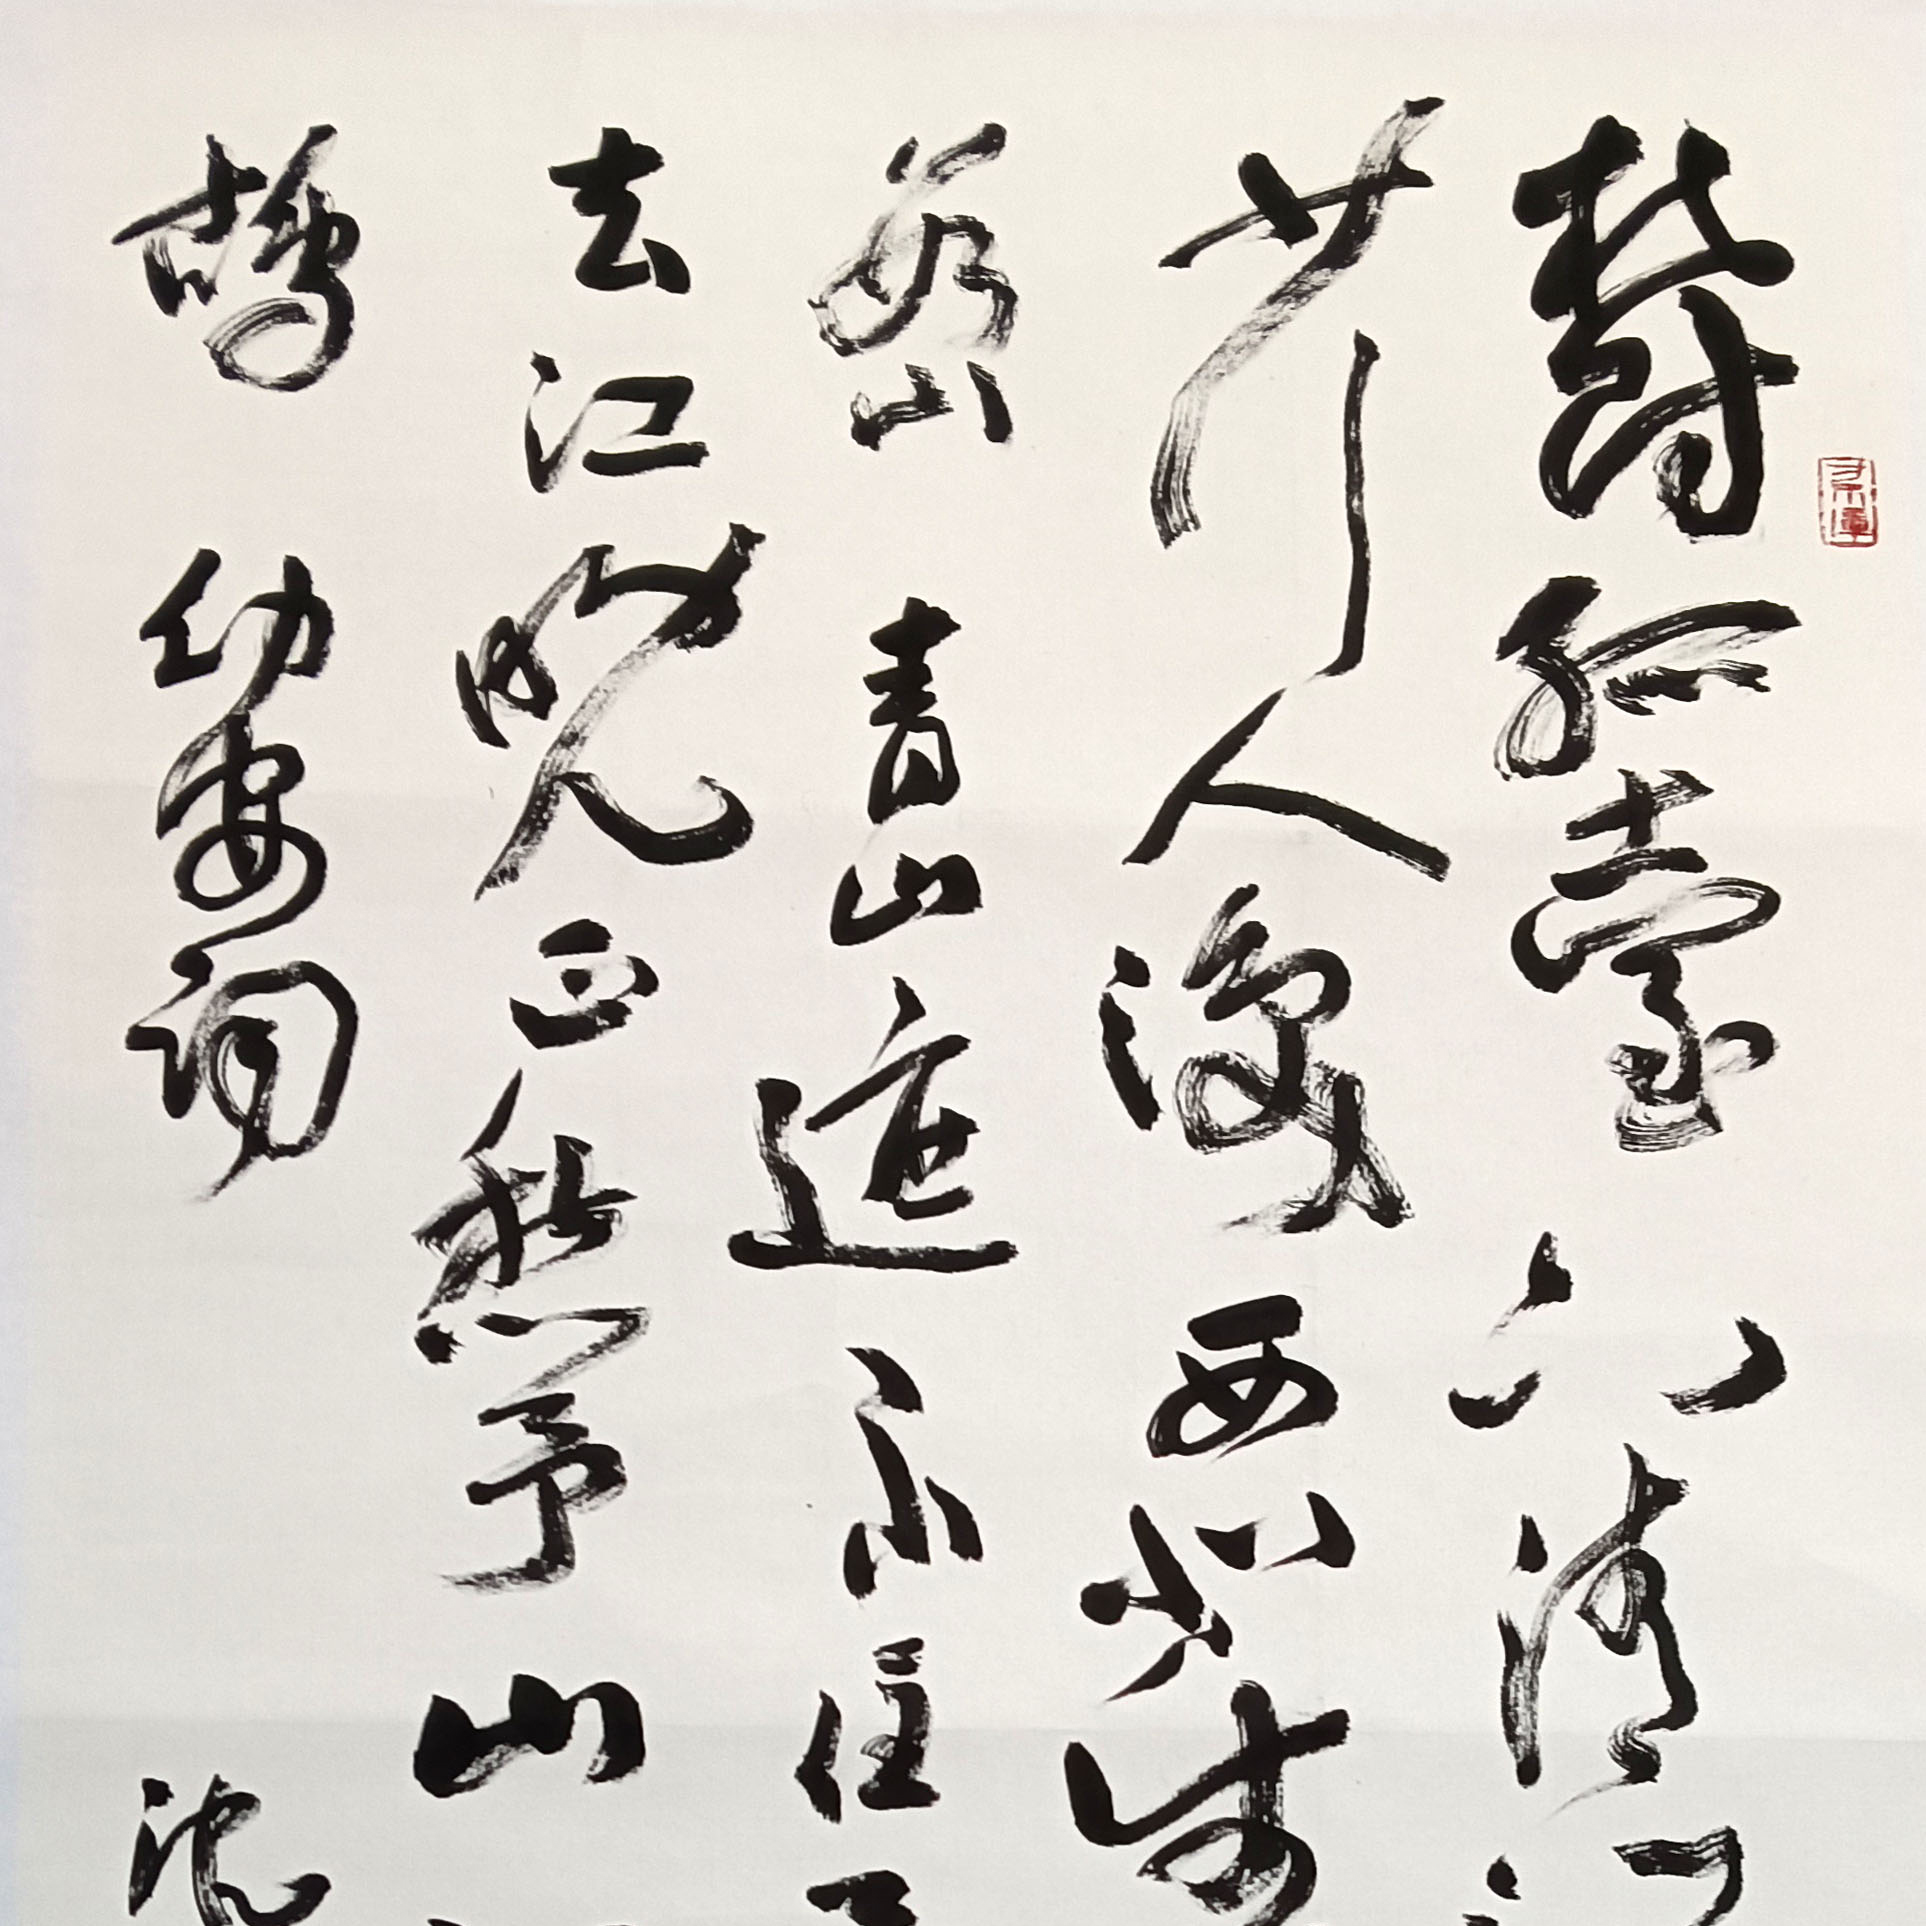 鬱孤臺下清
少行人淚西北望
數山青山遮不住
去江晚正愁予山
鴣幼安詞